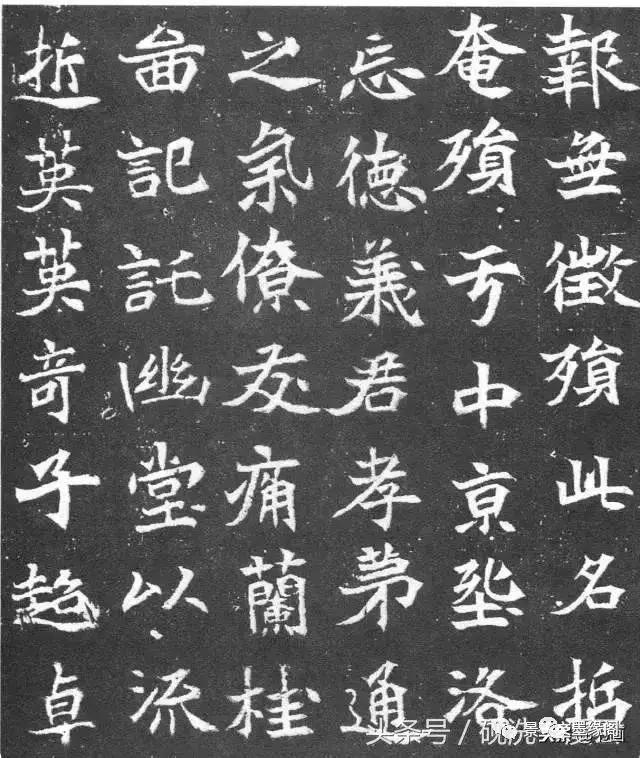 報無徵殞此名
奄殞亐中京洛
忘德義君孝苐通
之氣僚友痛蘭桂
啚記託幽堂以流
逝英英奇子超卓
头条号 / 砚洗